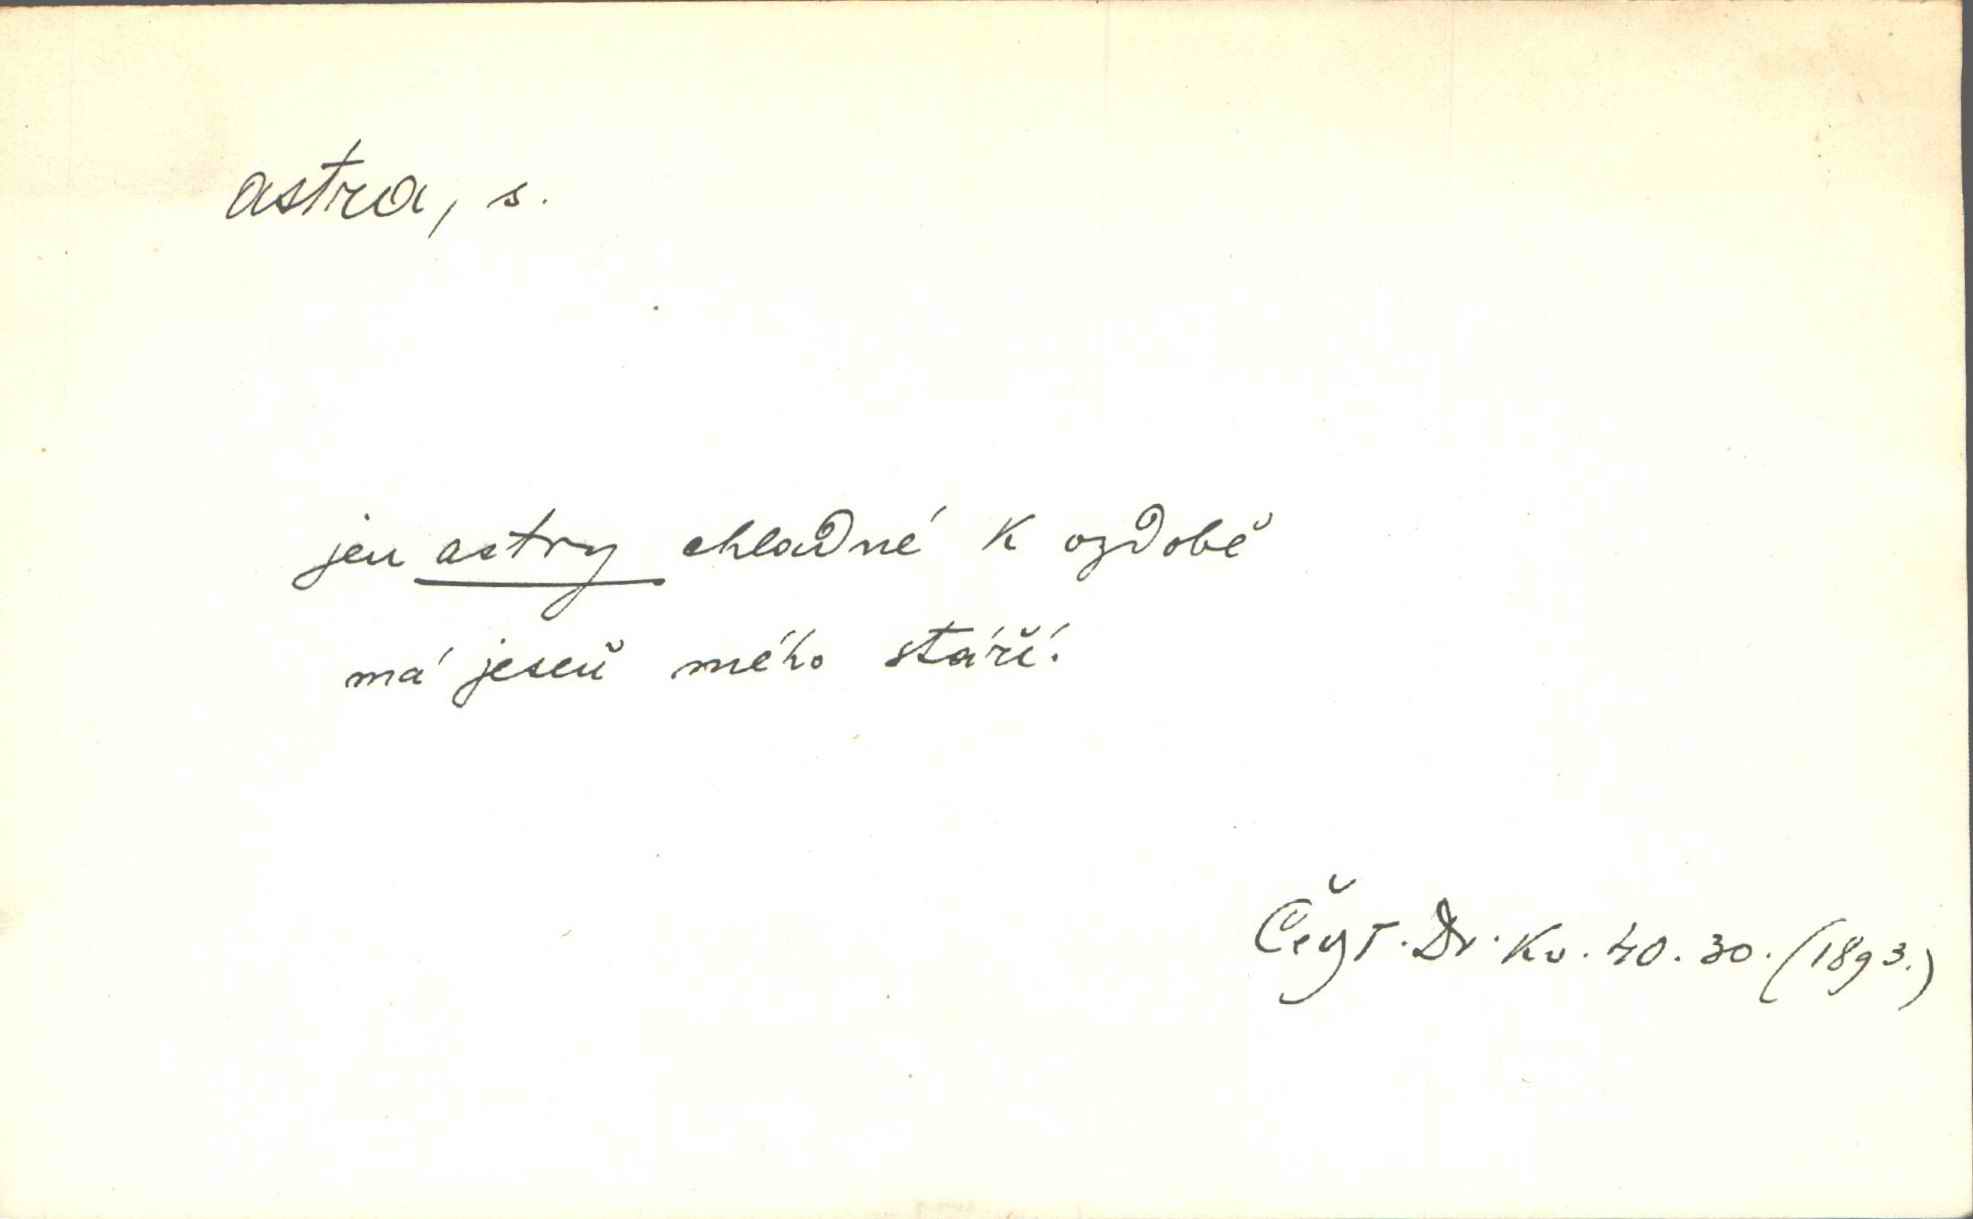 astra, s.
jen astry chladné k ozdobě
má jeseň mého stáří.
Čejr. Dr. Kv. 40. 30. (1893.)